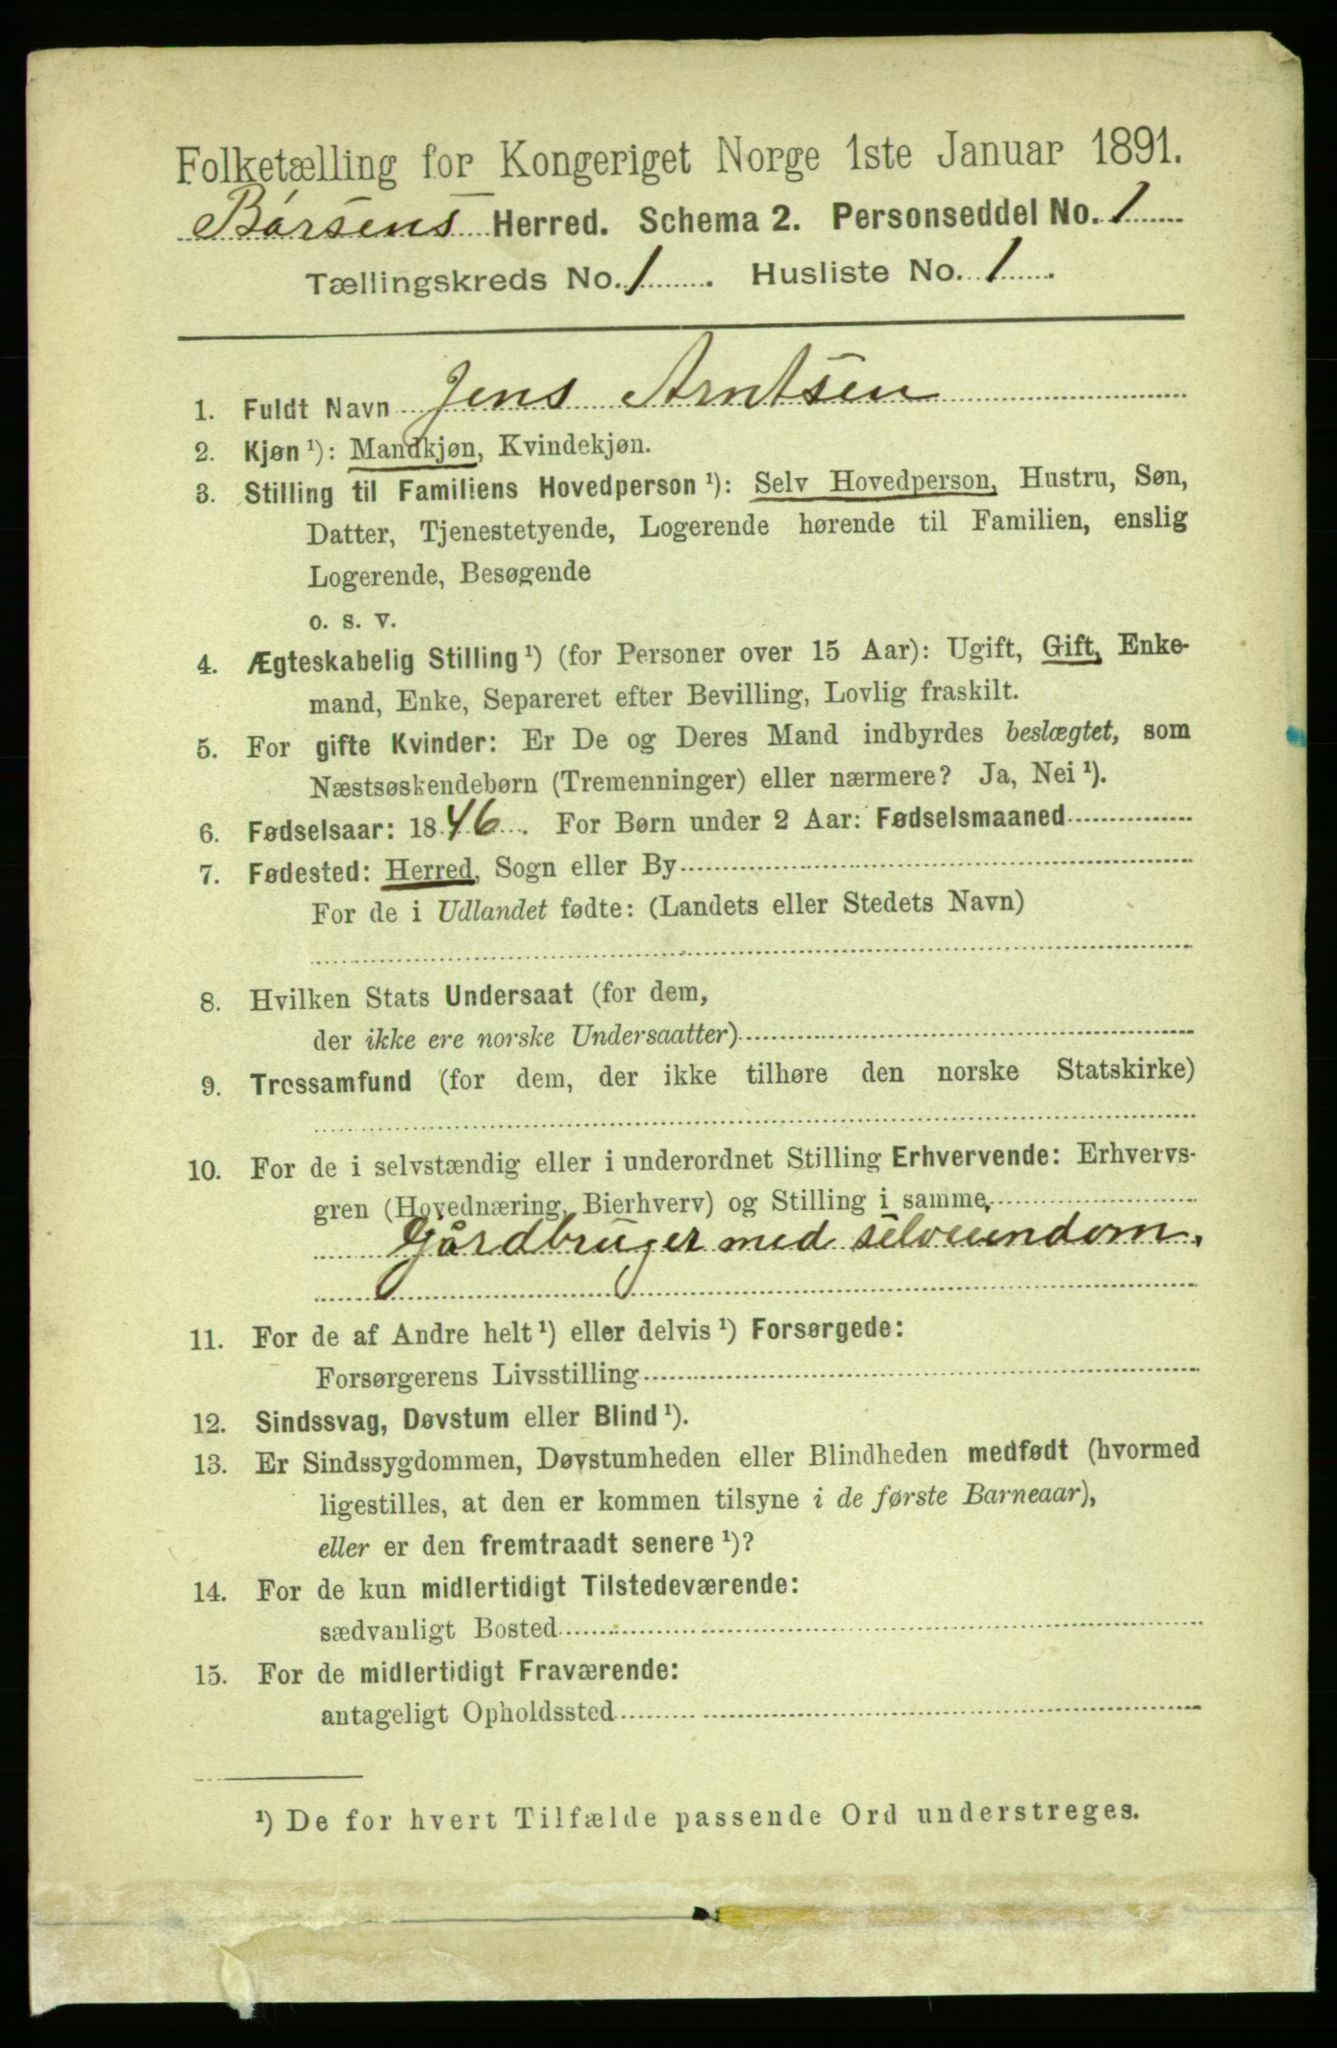 Folketælling for Kongeriget Norge 1ste Januar 1891.
Børsens Herred. Schema 2. Personseddel No. 1
Tællingskreds No. 1. Husliste No. 1.
1. Fuldt Navn Jens Arntsen
2. Kjøn ¹): Mandkjøn, Kvindekjøn.
3. Stilling til Familiens Hovedperson ¹): Selv Hovedperson, Hustru, Søn,
Datter, Tjenestetyende, Logerende hørende til Familien, enslig
Logerende, Besøgende
o. s. v.
4. Ægteskabelig Stilling ¹) (for Personer over 15 Aar): Ugift, Gift, Enke-
mand, Enke, Separeret efter Bevilling, Lovlig fraskilt.
5. For gifte Kvinder: Er De og Deres Mand indbyrdes beslægtet, som
Næstsøskendebørn (Tremenninger) eller nærmere? Ja, Nei ¹).
6. Fødselsaar: 1846. For Børn under 2 Aar: Fødselsmaaned
7. Fødested: Herred, Sogn eller By
For de i Udlandet fødte: (Landets eller Stedets Navn)
8. Hvilken Stats Undersaat (for dem,
der ikke ere norske Undersaatter)
9. Trossamfund (for dem, der ikke tilhøre den norske Statskirke)
10. For de i selvstændig eller i underordnet Stilling Erhvervende: Erhvervs-
gren (Hovednæring, Bierhverv) og Stilling i samme,
Gårdbruger med selveiendom.
11. For de af Andre helt ¹) eller delvis ¹) Forsørgede:
Forsørgerens Livsstilling
12. Sindssvag, Døvstum eller Blind ¹).
13. Er Sindssygdommen, Døvstumheden eller Blindheden medfødt (hvormed
ligestilles, at den er kommen tilsyne i de første Barneaar),
eller er den fremtraadt senere ¹)?
14. For de kun midlertidigt Tilstedeværende:
sædvanligt Bosted
15. For de midlertidigt Fraværende:
antageligt Opholdssted
¹) De for hvert Tilfælde passende Ord understreges.